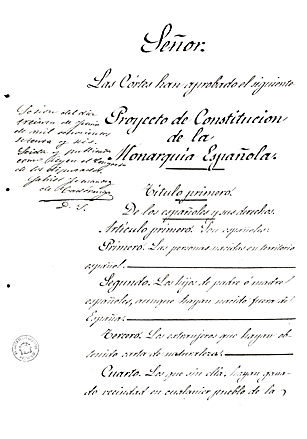 Señor.
Las Córtes han aprobado el siguiente
Proyecto de Constitucion
de la
Monarquía Española.
Sesion del dia
treinta de Junio
de mil ochocientos
setenta y seis.
D. S.
Título primero.
De los españoles y sus derechos.
Artículo primero. Son españoles:
Primero. Las personas nacidas en territorio
español.
Segundo. Los hijos de padre ó madre
españoles, aunque hayan nacido fuera de
España.
Tercero. Los extranjeros que hayan ob-
tenido carta de naturaleza.
Cuarto. Los que sin ella, hayan gana-
do vecindad en cualquier pueblo de la